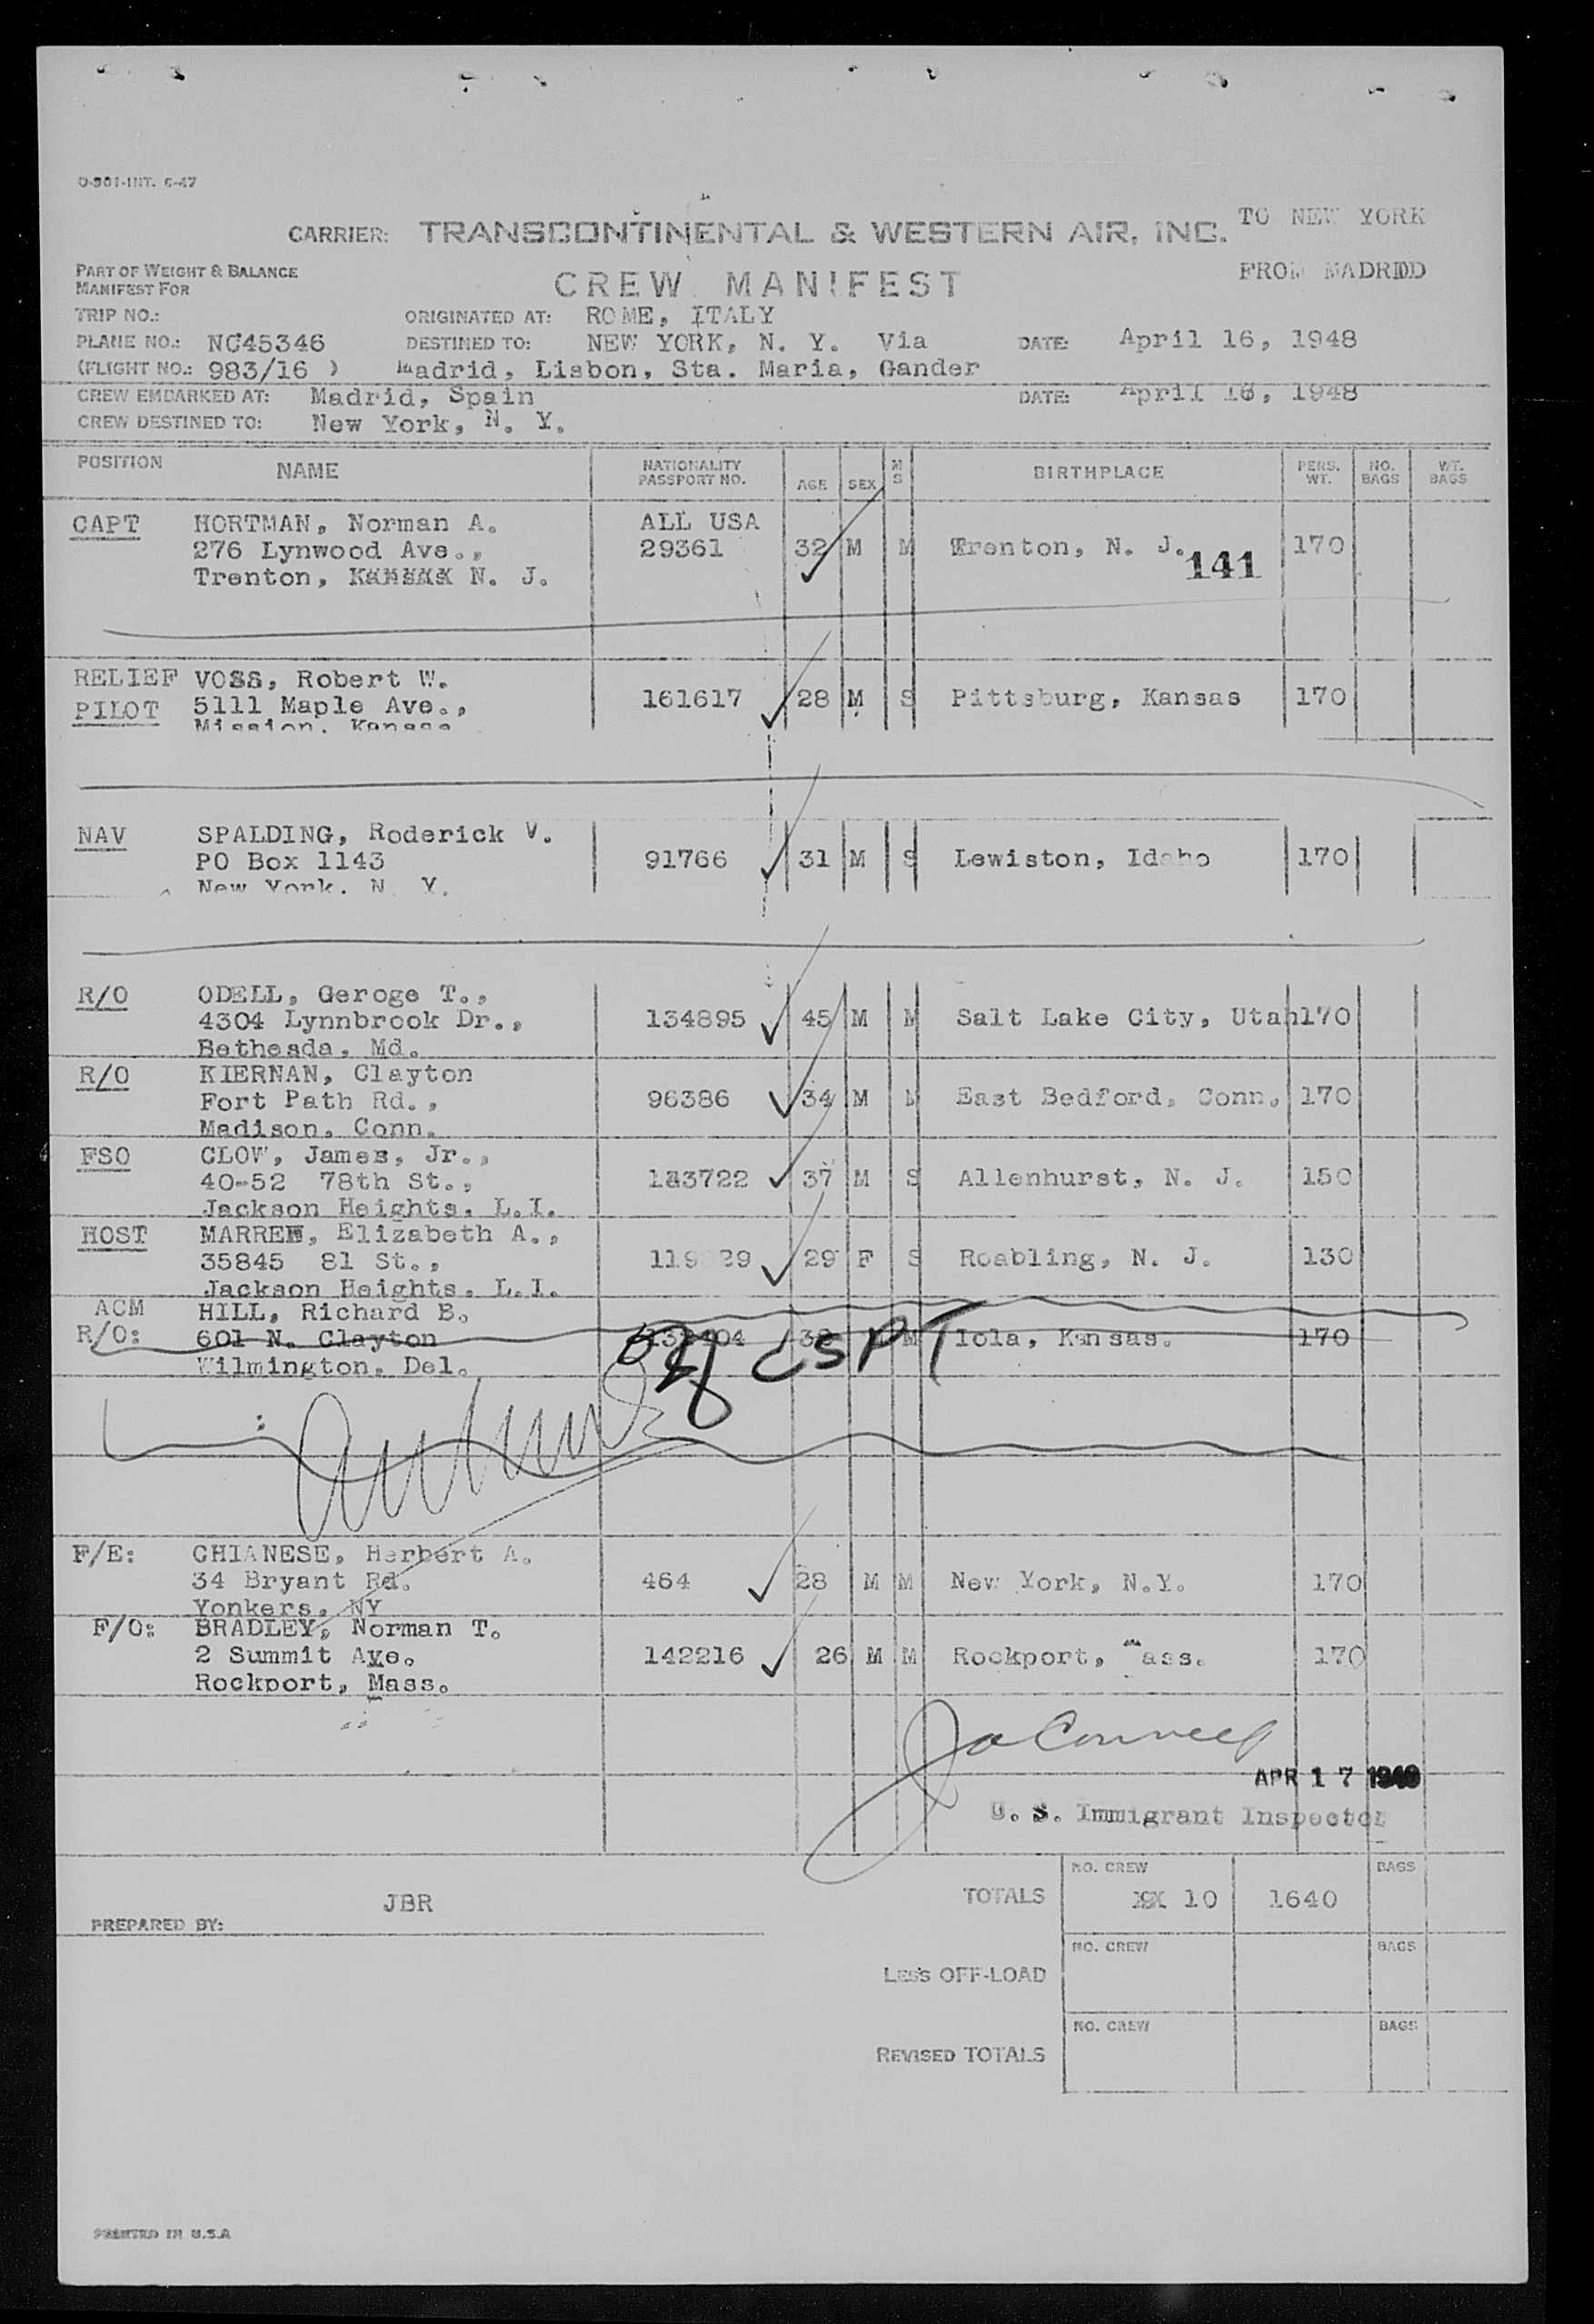 O-901-INT. 6-47
CARRIER: TRANSCONTINENTAL & WESTERN AIR, INC. TO NEW YORK
PART OF WEIGHT & BALANCE
MANIFEST FOR
CREW MANIFEST FROM MADRID
TRIP NO.: ORIGINATED AT: ROME, ITALY
PLANE NO.: NC45346 DESTINED TO: NEW YORK, N. Y. Via DATE: April 16, 1948
(FLIGHT NO.: 983/16 ) Madrid, Lisbon, Sta. Maria, Gander
CREW EMBARKED AT: Madrid, Spain DATE: April 16, 1948
CREW DESTINED TO: New York, N. Y.
POSITION NAME NATIONALITY PASSPORT NO. AGE SEX M S BIRTHPLACE PERS. WT. NO. BAGS WT. BAGS
CAPT HORTMAN, Norman A. ALL USA
276 Lynwood Ave., 29361 32 M M Trenton, N. J. 170
141
Trenton, N. J.
RELIEF VOSS, Robert W.
PILOT 5111 Maple Ave., 161617 28 M S Pittsburg, Kansas 170
Mission, Kansas
NAV SPALDING, Roderick V.
PO Box 1143 91766 31 M S Lewiston, Idaho 170
New York, N. Y.
R/O ODELL, Geroge T.,
4304 Lynnbrook Dr., 134895 45 M M Salt Lake City, Utah 170
Bethesda, Md.
R/O KIERNAN, Clayton
Fort Path Rd., 96386 34 M M East Bedford, Conn, 170
Madison, Conn.
FSO CLOW, James, Jr.,
40-52 78th St., 37 M S Allenhurst, N. J. 150
Jackson Heights, L.I.
HOST Elizabeth A.,
35845 81 St., 29 F S Roabling, N. J. 130
Jackson Heights, L.I.
ACM HILL, Richard B.
R/O: 601 N. Clayton M Iola, Kansas. 170
CSPT
Wilmington, Del.
F/E: CHIANESE, Herbert A.
34 Bryant Rd. 464 28 M M New York, N.Y. 170
Yonkers, NY
F/O: BRADLEY, Norman T.
2 Summit Ave. 142216 26 M M Rockport, Mass. 170
Rockport, Mass.
APR 17 1948
U. S. Immigrant Inspector
NO. CREW BAGS
TOTALS 10 1640
JBR
PREPARED BY:
NO. CREW BAGS
LESS OFF-LOAD
NO. CREW BAGS
REVISED TOTALS
PRINTED IN U.S.A